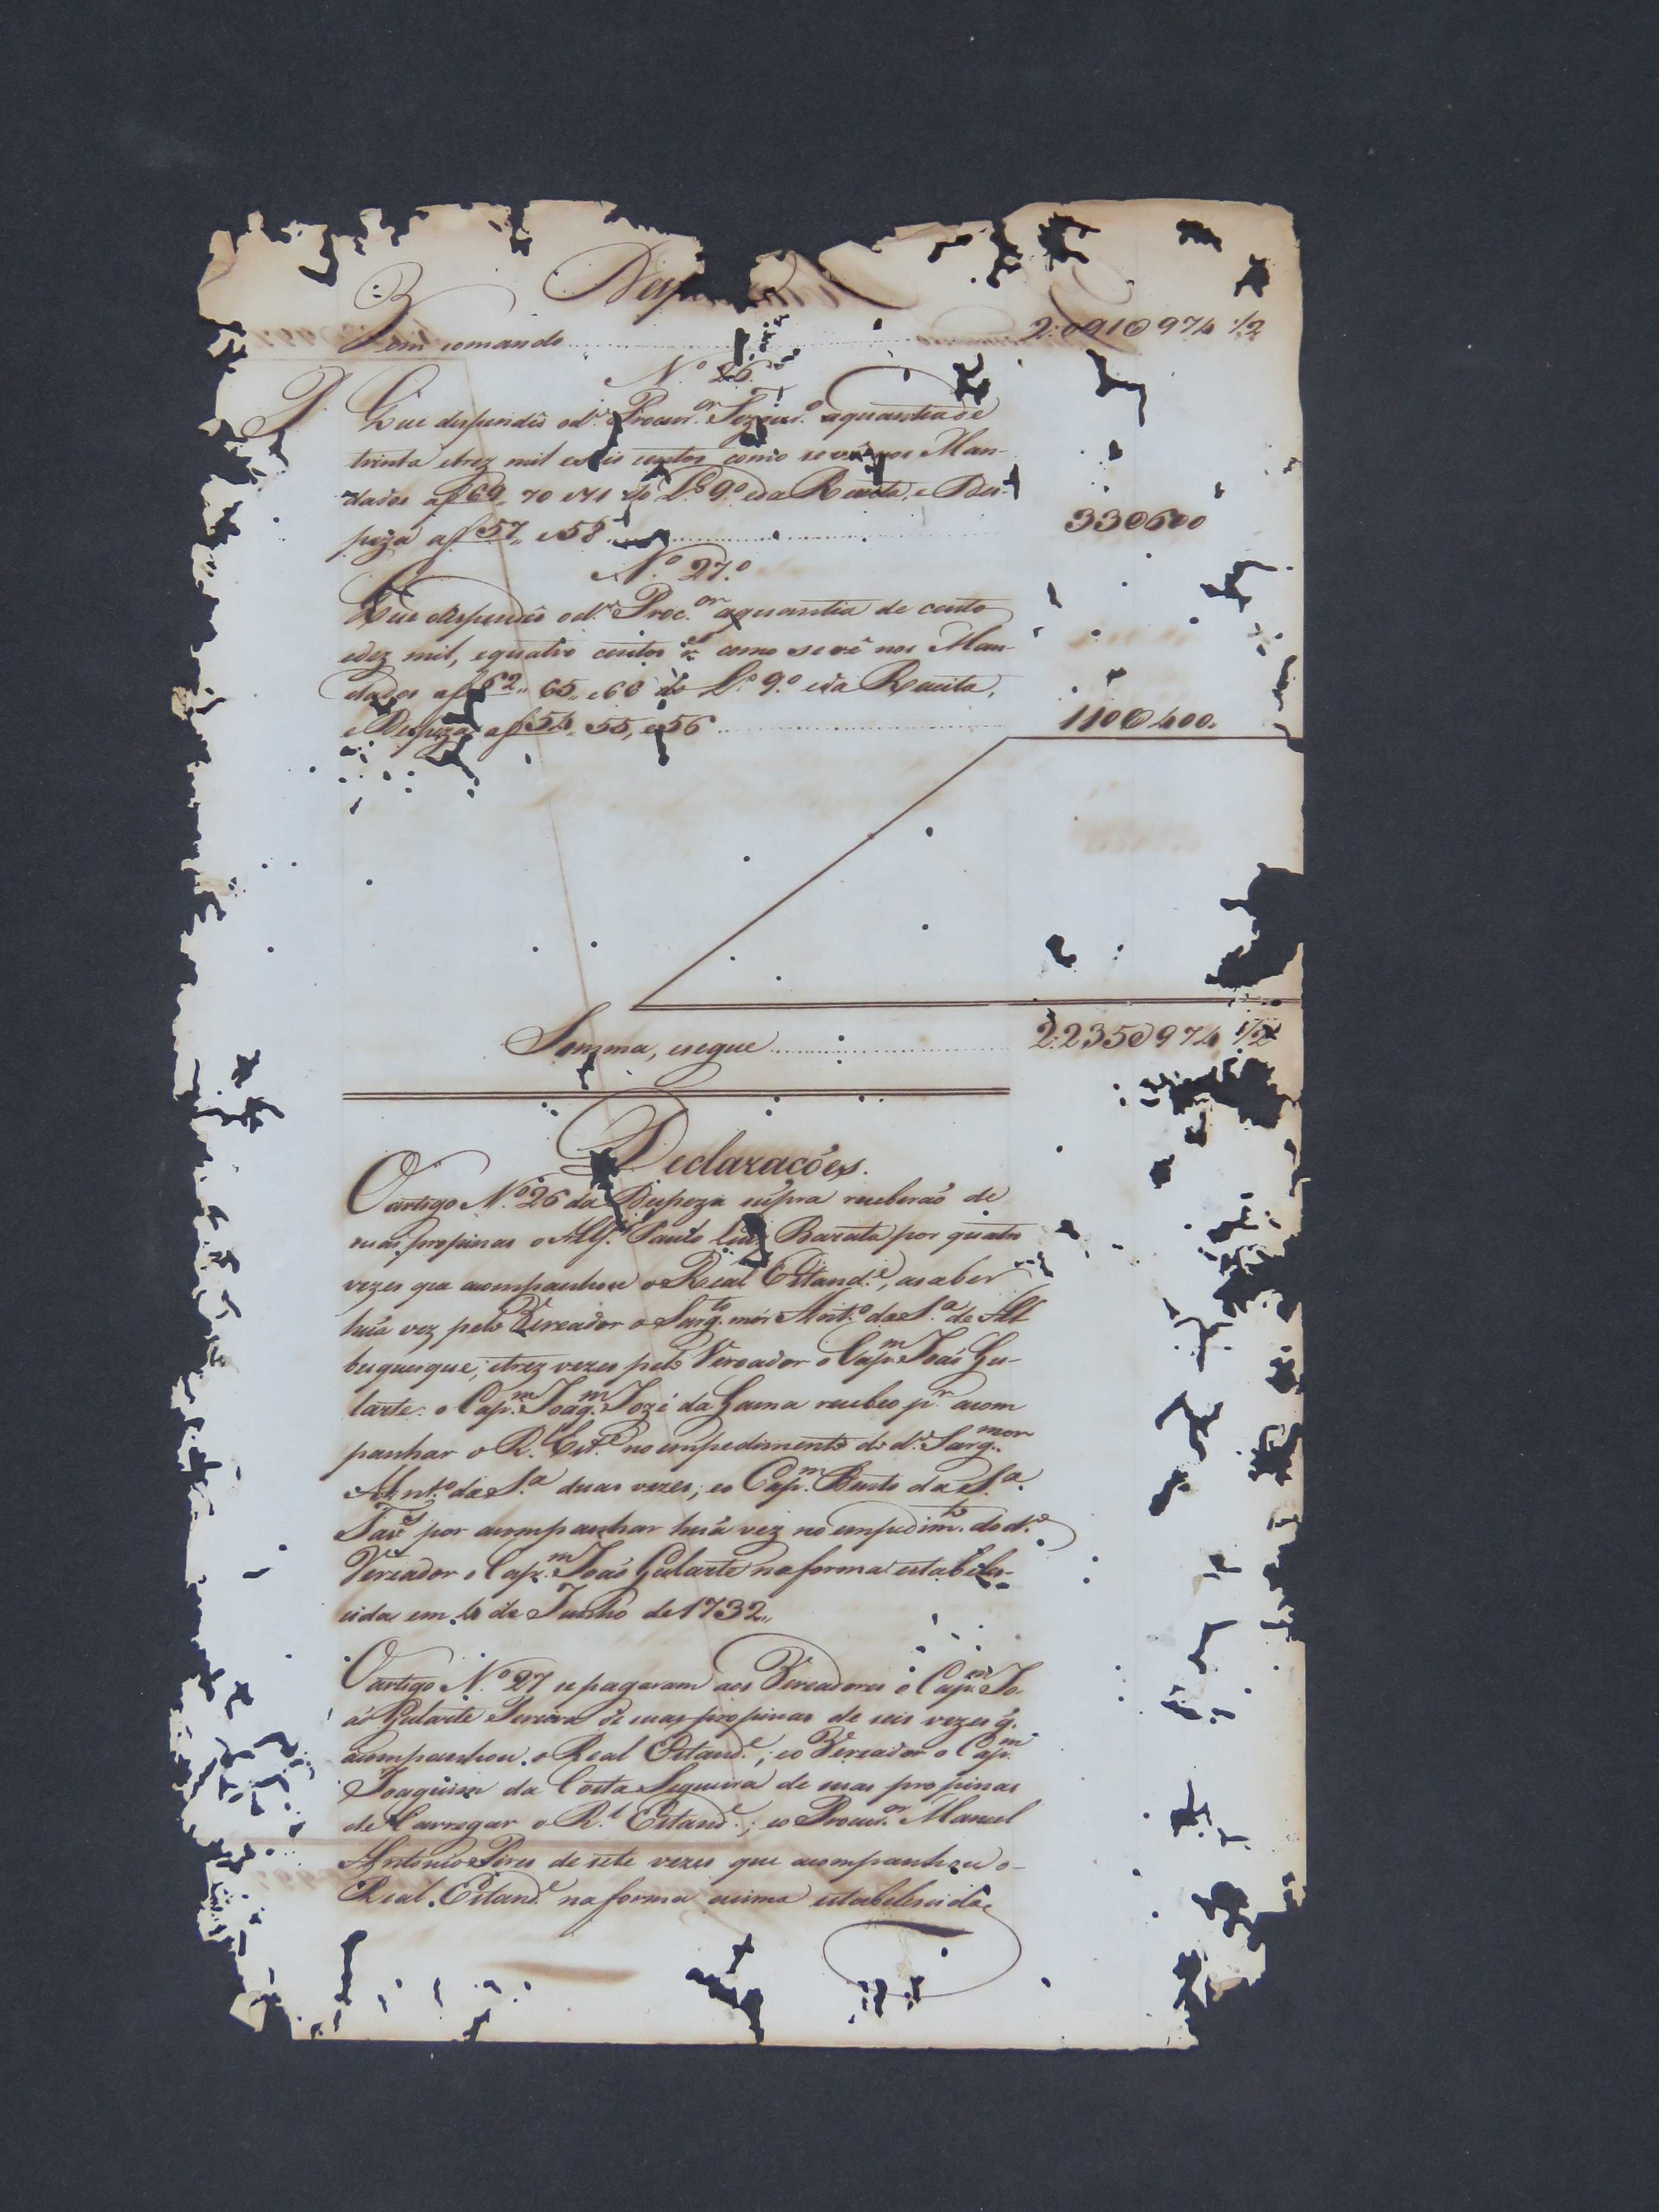 Vem somando 2:091$974 1/2
N.º 26.º
Que despendeo o d.º Procur.or Tezour.º a quantia de
trinta e trez mil e seis centos como se vê nos Man-
dados a f 69,, 70 e 71 do L.º 9.º e da Receita, e Des-
peza a f 57,, e 58 33$600
N.º 27.º
Que despendeo o d.º Proc.or a quantia de cento
e dez mil, e quatro centos r.s como se vê nos Man-
dados a f 62,, 65,, e 68 do L.º 9.º e da Receita,
e Despeza a f 54,, 55, e 56 110$400.
Somma, e segue 2:235$974 1/2
Declaracões.
O artigo N.º 26 da Despeza supra receberaõ de
suas propinas o Alf.s Paulo Luiz Barata por quatro
vezes que acompanhou o Real Estand.e, a saber
huã vez pelo Vereador o Sarg.to mór Ant.º da S.ª de Al
buquerque; e trez vezes pelo Vereador o Cap.m Joaõ Gu-
larte: o Cap.m Joaq.m Jozé da Gama recebeo p.r acom
panhar o R.l Est.e no impedimento do d.º Sarg.mor
Ant.º da S.ª duas vezes; e o Cap.m Bento da S.ª
Tav.es por acompanhar huã vez no impedim.to do d.º
Vereador o Cap.m Joaõ Gularte na forma estabele-
cida em 4 de Junho de 1732,,
O artigo N.º 27 se pagaram aos Vereadores o Cap.m Jo-
aõ Gularte Pereira de suas propinas de seis vezes q.
acompanhou o Real Estand.e; e o Vereador o Cap.m
Joaquim da Costa Sequeira de suas propinas
de Carregar o R.l Estand.e; e o Procur.or Manoel
Antonio Pires de sete vezes que acompanhou o
Real Estand.e na forma acima estabelescida